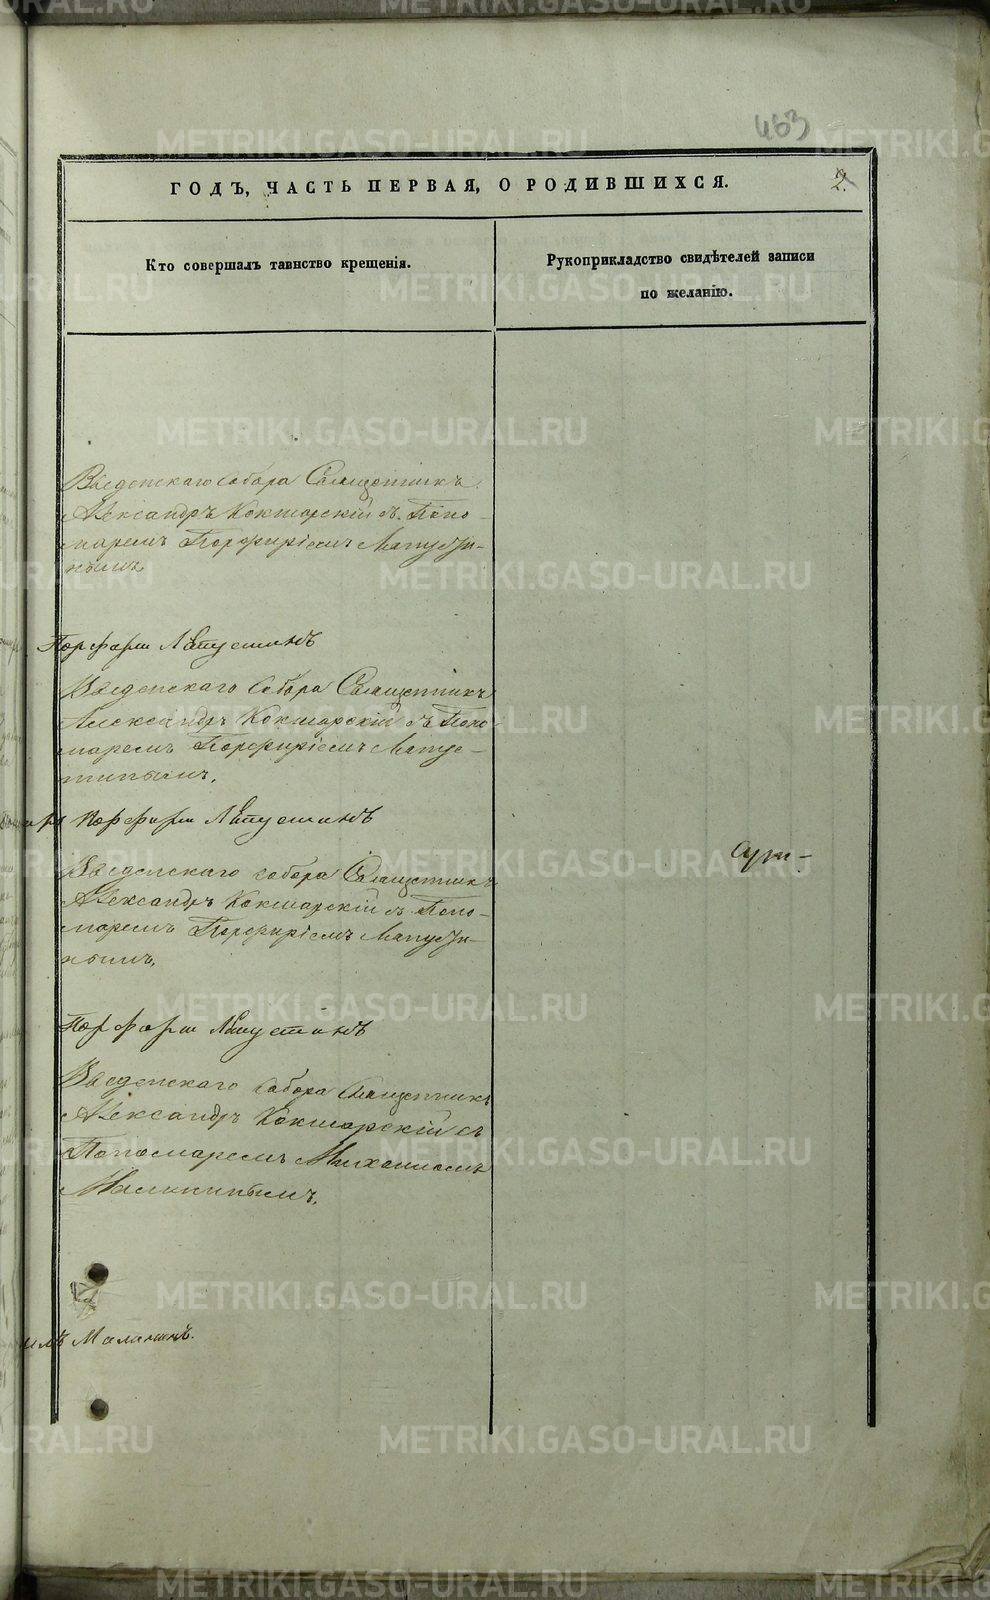 METRIKI.GASO-URAL.RU
463
ГОДЪ, ЧАСТЬ ПЕРВАЯ, О РОДИВШИХСЯ.
2.
Кто совершалъ таинство крещенія.
Рукоприкладство свидѣтелей записи
по желанію.
Введенскаго собора Священникъ
Александръ Кокшарскій съ Поно-
маремъ Порфиріемъ Лапусти-
нымъ
Порфирий Лапустинъ
Введенскаго собора Священникъ
Александръ Кокшарскій съ Поно-
маремъ Порфиріемъ Лапус-
тинымъ.
Порфирий Лапустинъ
Введенскаго собора Священникъ
Александръ Кокшарскій съ Поно-
маремъ Порфиріемъ Лапусти-
нымъ.
Порфирий Лапустинъ
Введенскаго собора Священникъ
Александръ Кокшарскій съ
Пономаремъ Михаиломъ
Малининымъ.
Малининъ.